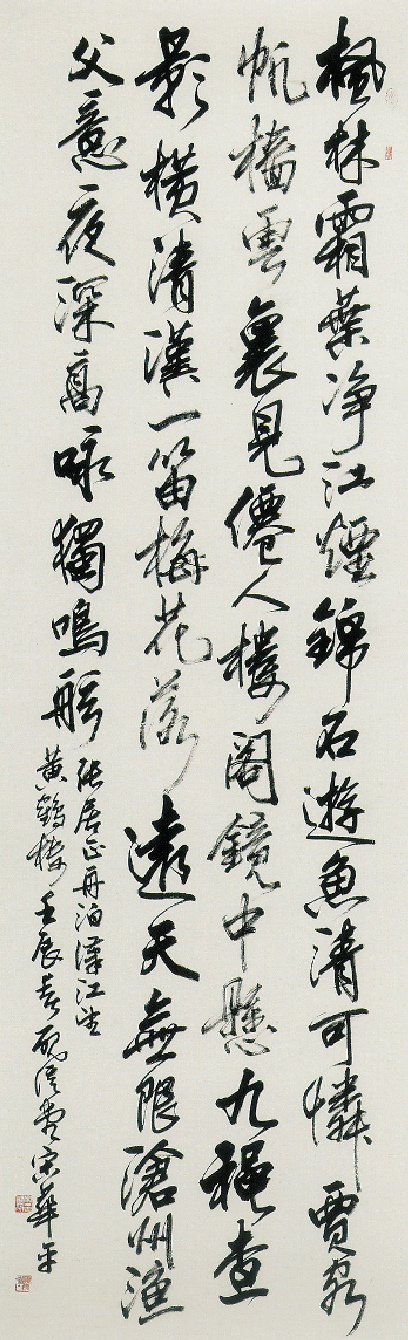 楓林霜葉净江煙錦石遊魚清可憐賈客
帆檣雲裏見僊人樓閣鏡中懸九穐查
影橫清漢一笛梅花落遠天無限滄州漁
父意夜深高咏獨鳴舷
張居正舟泊漢江望
黃鶴樓壬辰春宋華平